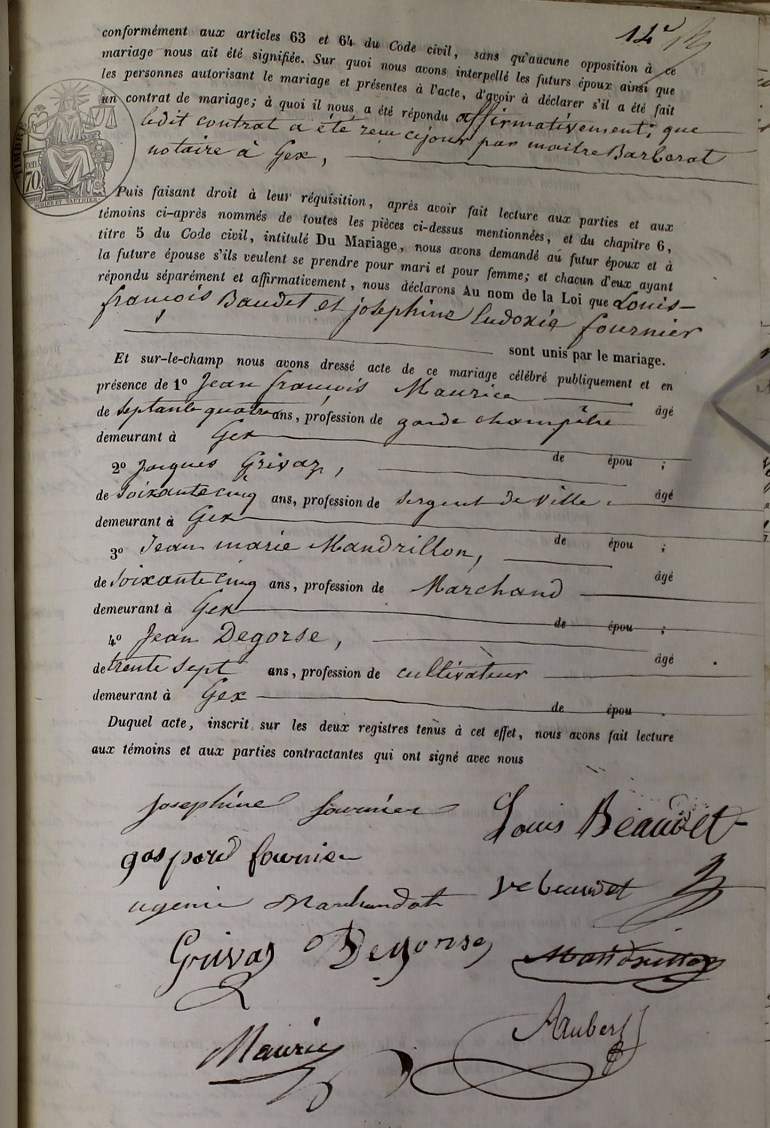 14
conformément aux articles 63 et 64 du Code civil, sans qu'aucune opposition à ce
mariage nous ait été signifiée. Sur quoi nous avons interpellé les futurs époux ainsi que
les personnes autorisant le mariage et présentes à l'acte, d'avoir à déclarer s'il a été fait
un contrat de mariage; à quoi il nous a été répondu affirmativement; que
ledit contrat a été reçu ce jour par maitre Barberat
notaire à Gex,
TIMBRE
70
Puis faisant droit à leur réquisition, après avoir fait lecture aux parties et aux
témoins ci-après nommés de toutes les pièces ci-dessus mentionnées, et du chapitre 6,
titre 5 du Code civil, intitulé Du Mariage, nous avons demandé au futur époux et à
la future épouse s'ils veulent se prendre pour mari et pour femme; et chacun d'eux ayant
répondu séparément et affirmativement, nous déclarons Au nom de la Loi que Louis-
françois Baudet et josephine Eudoxie fournier
sont unis par le mariage.
Et sur-le-champ nous avons dressé acte de ce mariage célébré publiquement et en
présence de 1º Jean françois Maurice âgé
de septante quatre ans, profession de garde champêtre
demeurant à Gex de épou ;
2º Jacques Grivaz, âgé
de soixante cinq ans, profession de sergent de ville
demeurant à Gex de épou ;
3º Jean marie Mandrillon, âgé
de soixante cinq ans, profession de Marchand
demeurant à Gex de épou ;
4º Jean Degorse, âgé
de trente sept ans, profession de cultivateur
demeurant à Gex de épou .
Duquel acte, inscrit sur les deux registres tenus à cet effet, nous avons fait lecture
aux témoins et aux parties contractantes qui ont signé avec nous
josephine fournier Louis Beaudet
gaspard fournier
Marchandot Ve beaudet
Grivaz Degorse Mandrillon
Maurice Aubert